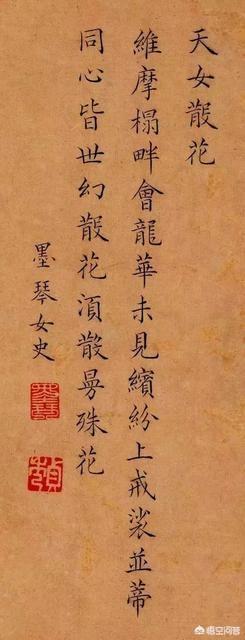 天女散花
維摩榻畔會龍華未見繽紛上戒裟並蒂
同心皆世幻散花須散曼殊花
墨琴女史
墨琴
貞
悟空问答